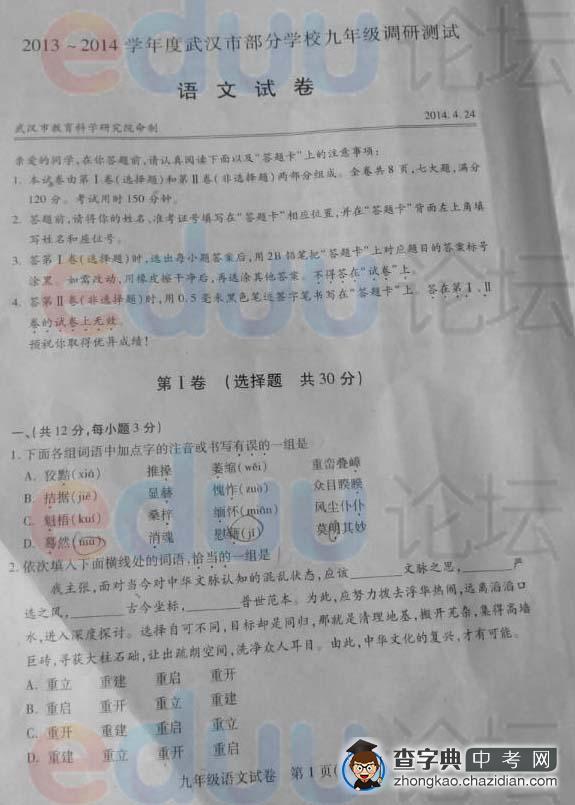 2013～2014学年度武汉市部分学校九年级调研测试
语文试卷
武汉市教育科学研究院命制
2014.4.24
亲爱的同学,在你答题前,请认真阅读下面以及“答题卡”上的注意事项:
1. 本试卷由第Ⅰ卷(选择题)和第Ⅱ卷(非选择题)两部分组成。全卷共8页,七大题,满分
120分。考试用时150分钟。
2. 答题前,请将你的姓名、准考证号填写在“答题卡”相应位置,并在“答题卡”背面左上角填
写姓名和座位号。
3. 答第Ⅰ卷(选择题)时,选出每小题答案后,用2B铅笔把“答题卡”上对应题目的答案标号
涂黑。如需改动,用橡皮擦干净后,再选涂其他答案。不得答在“试卷”上。
4. 答第Ⅱ卷(非选择题)时,用0.5毫米黑色笔迹签字笔书写在“答题卡”上。答在第Ⅰ、Ⅱ
卷的试卷上无效。
预祝你取得优异成绩!
第Ⅰ卷 (选择题 共30分)
一、(共12分,每小题3分)
1. 下面各组词语中加点字的注音或书写有误的一组是
A. 狡黠(xiá) 推搡 萎缩(wěi) 重峦叠嶂
B. 拮据(jié) 显赫 愧怍(zuò) 众目睽睽
C. 魁梧(kuí) 桑梓 缅怀(miǎn) 风尘仆仆
D. 蓦然(mù) 消魂 慰藉(jí) 莫明其妙
2. 依次填入下面横线处的词语,恰当的一组是
我主张,面对当今对中华文脉认知的混乱状态,应该________文脉之思,________严
选之风,________古今坐标,________普世范本。为此,应努力拨去浮华热闹,远离滔滔口
水,进入深度探讨。选择自可不同,目标却是同归,那就是清理地基,搬开芜杂,集得高墙
巨砖,寻获大柱石础,让出疏朗空间,洗净众人耳目。由此,中华文化的复兴,才有可能。
A. 重立 重建 重启 重开
B. 重启 重开 重立 重建
C. 重开 重建 重启 重立
D. 重建 重立 重开 重启
九年级语文试卷 第1页(
eduu论坛
eduu论坛
eduu论坛
查字典中考网
zhongkao.chazidian.com